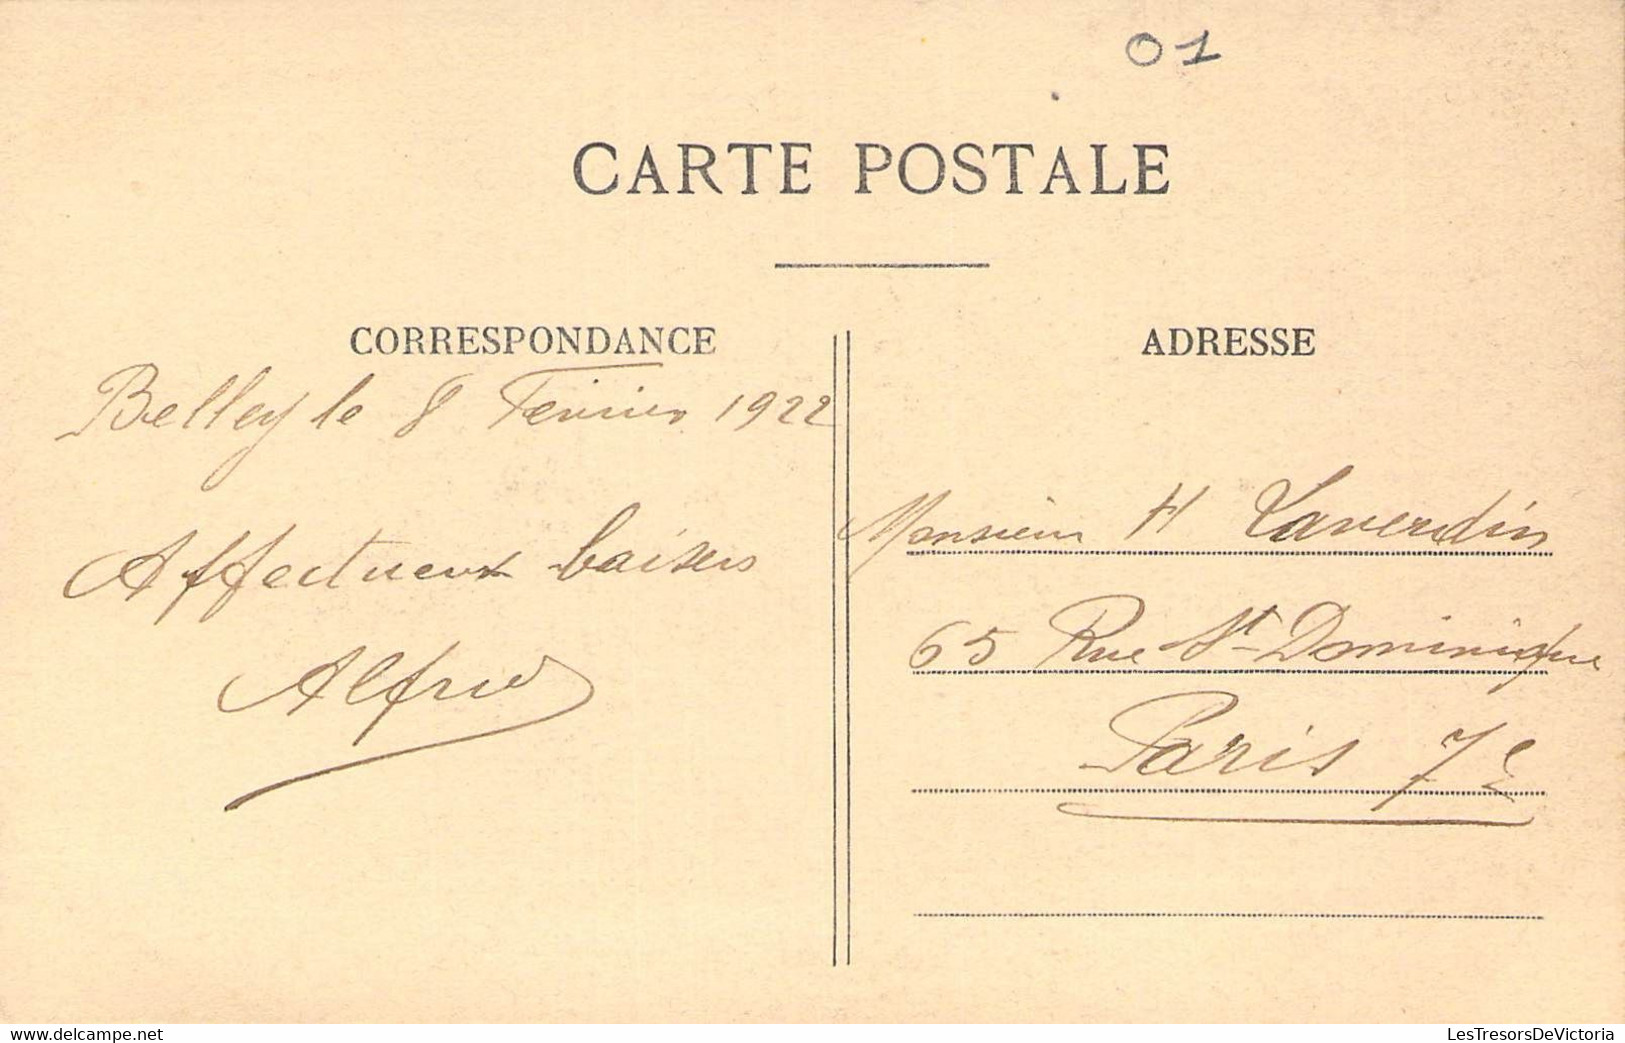 01
CARTE POSTALE
CORRESPONDANCE
Belley le 8 Février 1922
Affectueux baisers
Alfred
ADRESSE
Monsieur H Laverdin
65 Rue St Dominique
Paris 7e
www.delcampe.net
LesTresorsDeVictoria